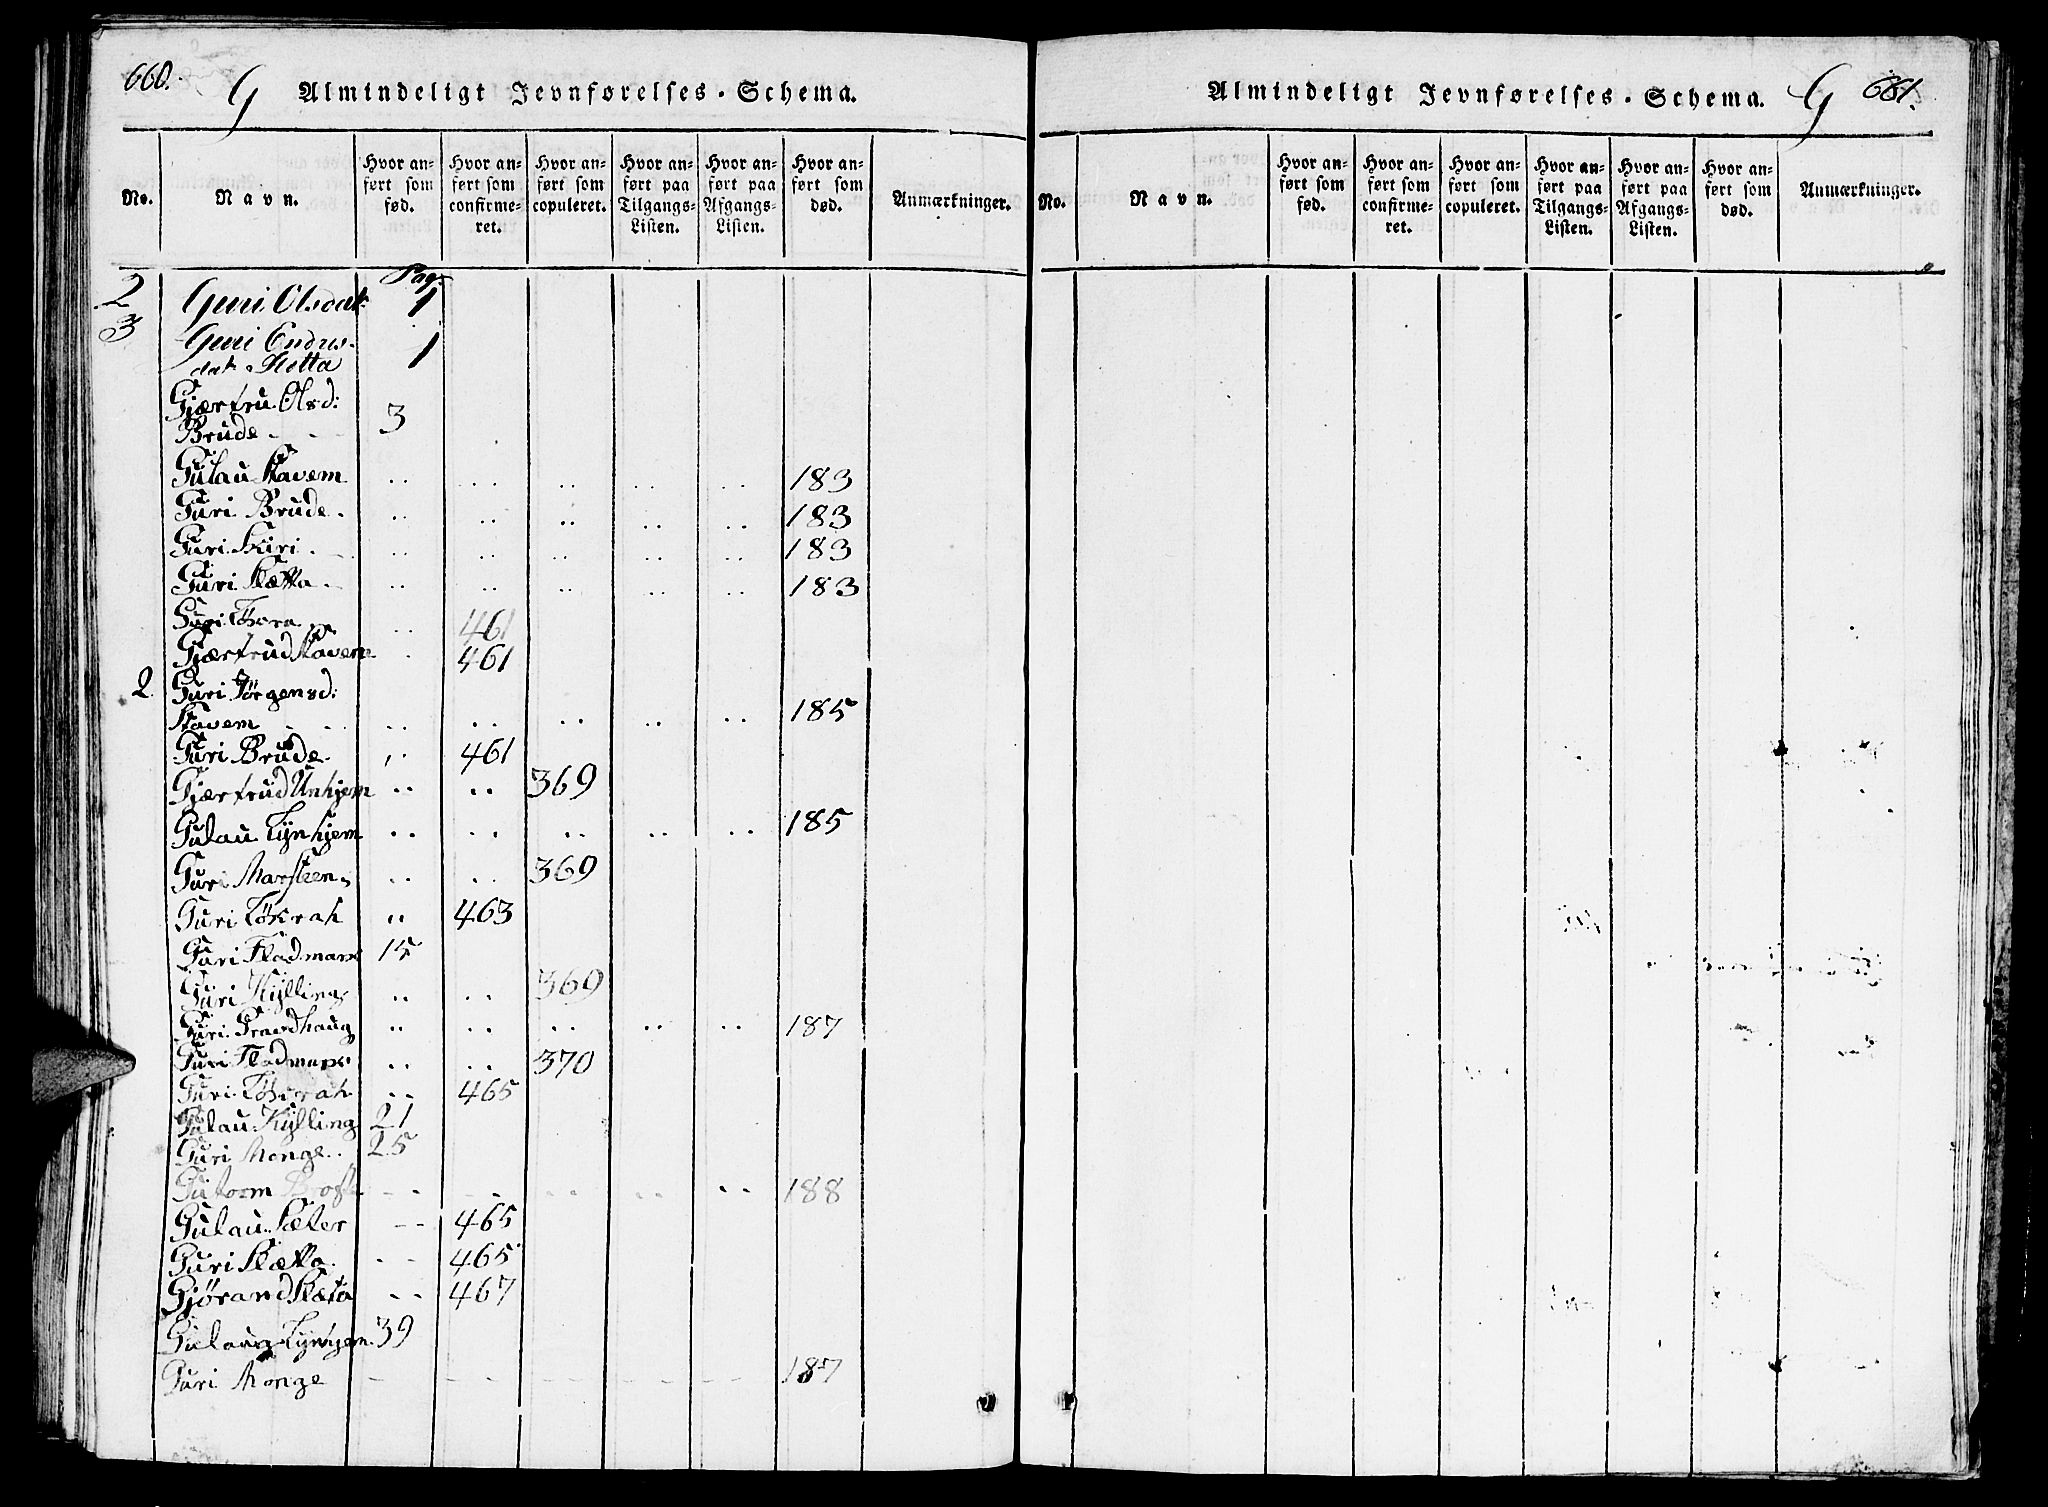 660.
G Almindeligt Jevnførelses-Schema.
No. Navn. Hvor anført som fød. Hvor anført som confirmeret. Hvor anført som copuleret. Hvor anført paa Tilgangs-Listen. Hvor anført paa Afgangs-Listen. Hvor anført som død. Anmærkninger.
Pag.
2 Guri Olsdatr 1
3 Guri Endres-
datr Sletta 1
Gjærtru Olsd:
Brude - - 3
Gulau Stavem .. .. .. .. .. 183
Guri Brude. .. .. .. .. .. 183
Guri Skiri. .. .. .. .. .. 183
Guri Slætta. .. .. .. .. .. 183
Guri Tøsra .. 461
Gjærtrud Stavem .. 461
2. Guri Jørgensd:
Stavem .. .. .. .. .. 185
Guri Brude. .. 461
Gjærtrud Unhjem .. .. 369
Gulau Lynhjem .. .. .. .. .. 185
Guri Marsteen .. .. 369
Guri Tøsrah .. 463
Guri Fladmark 15
Guri Kylling .. .. 369
Guri Gravdhaug .. .. .. .. .. 187
Guri Fladmark .. .. 370
Guri Tøsrah -- 465
Gulau Kylling 21
Guri Monge.. 25
Gutorm -- -- -- -- -- 188
Gulau Sæter -- 465
Guri Slætta. -- 465
Gjørand Slæta -- 467
Gulaug Lynhjem 39
Guri Monge - - - - - 187
Almindeligt Jevnførelses-Schema. G 661.
No. Navn. Hvor anført som fød. Hvor anført som confirmeret. Hvor anført som copuleret. Hvor anført paa Tilgangs-Listen. Hvor anført paa Afgangs-Listen. Hvor anført som død. Anmærkninger.